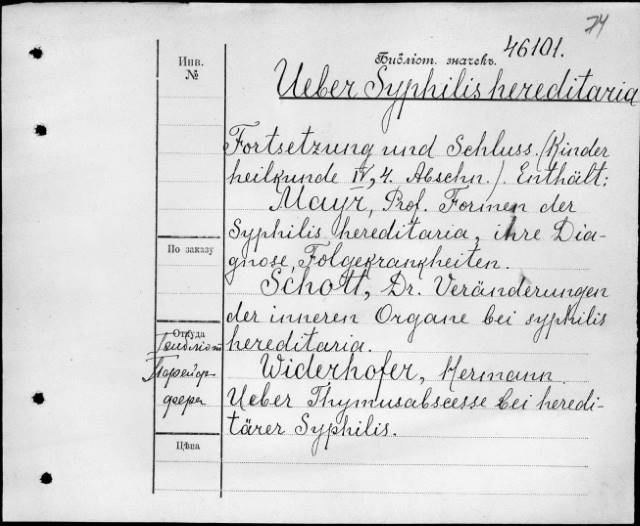 74
Библіот. значекъ. 46101.
Инв.
№
Ueber Syphilis hereditaria
Fortsetzung und Schluss. (Kinder
heilkunde IV, 4. Abschn.). Enthält:
Mayr, Prof. Formen der
Syphilis hereditaria, ihre Dia-
gnose, Folgekrankheiten.
По заказу
Schott, Dr. Veränderungen
der inneren Organe bei syphilis
hereditaria.
Откуда
Widerhofer, Hermann.
Ueber Thymusabscesse bei heredi-
tärer Syphilis.
Цѣна